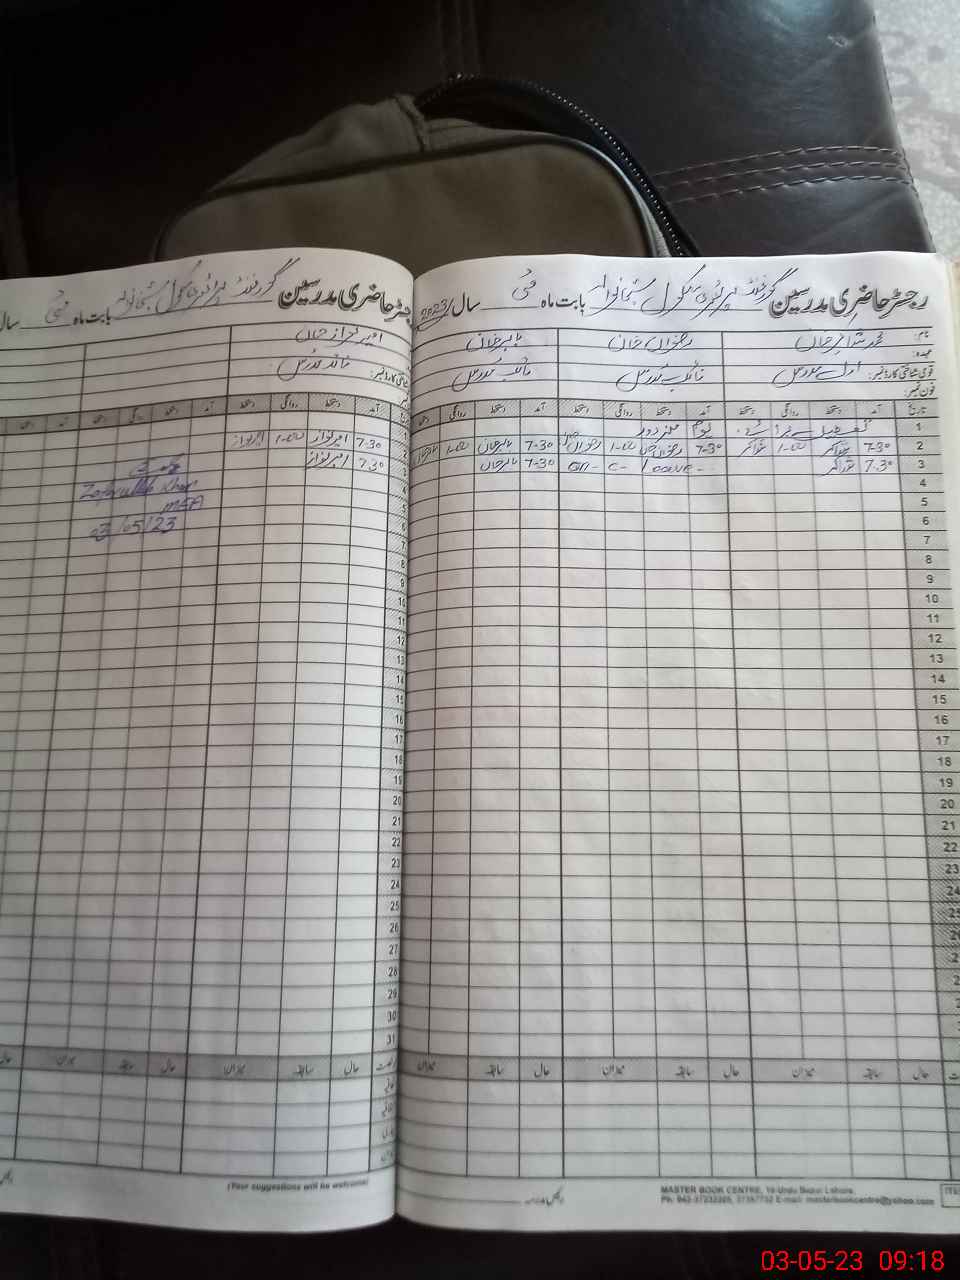 رجسٹر حاضری مدرسین گورنمنٹ پرائمری سکول بابت ماہ مئی سال 2023
نام:
عہدہ:
قومی شناختی کارڈ نمبر:
فون نمبر:
رضوان خان
بابر خان
نائب مدرس
نائب مدرس
تاریخ آمد دستخط روانگی دستخط آمد دستخط روانگی دستخط آمد دستخط روانگی دستخط
1 تعطیل یوم مزدور
2 7-30 1-00 7-30 1-00 7-30 بابر خان 1-00 بابر خان
3 7.30 on - C - Leave - 7-30 بابر خان
4
5
6
7
8
9
10
11
12
13
14
15
16
17
18
19
20
21
22
23
24
25
حال سابقہ میزان حال سابقہ میزان حال سابقہ میزان
MASTER BOOK CENTRE, 19-Urdu Bazar Lahore.
E-mail: masterbookcentre@yahoo.com
رجسٹر حاضری مدرسین گورنمنٹ پرائمری سکول بابت ماہ مئی سال
امیر نواز خان
نائب مدرس
آمد دستخط روانگی دستخط آمد دستخط روانگی دستخط آمد
1
2 7-30 امیر نواز 1-00 امیر نواز
3 7.30 امیر نواز
4
5
6
7
8
9
10
11
12
13
14
15
16
17
18
19
20
21
22
23
24
25
26
27
28
29
30
31
Zafarullah Khan
MEA
03/05/23
حال سابقہ میزان حال سابقہ میزان
(Your suggestions will be welcome)
03-05-23 09:18